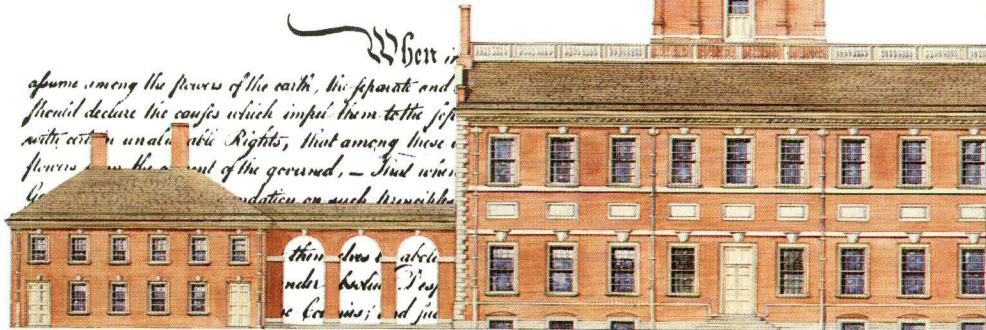 When in
assume among the powers of the earth, the separate and
should declare the causes which impel them to the sep
with certain unalienable Rights, that among these
powers from the consent of the governed, — That when
ndation on such principles
them lves abol
nder bsolu Desp
Colonies; and suc